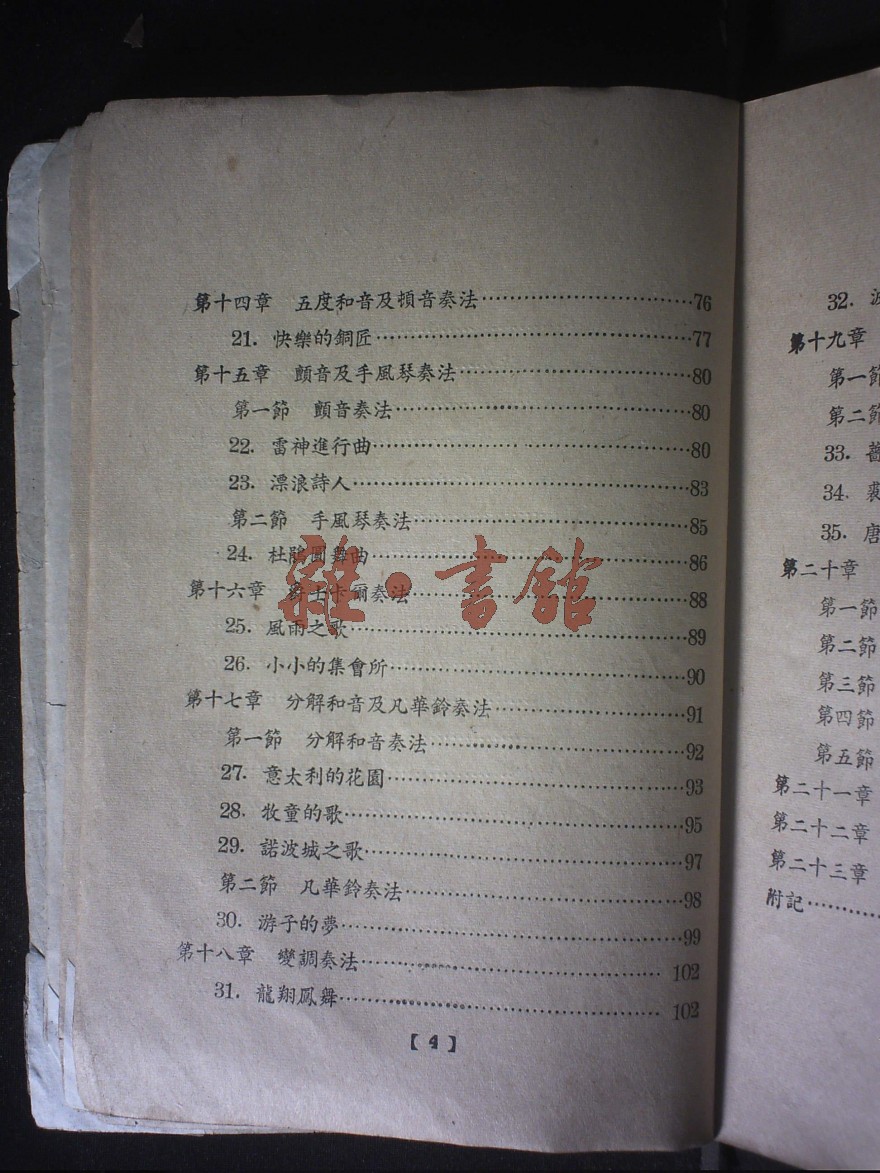 第十四章 五度和音及頓音奏法……76
21. 快樂的銅匠……77
第十五章 顫音及手風琴奏法……80
第一節 顫音奏法……80
22. 雷神進行曲……80
23. 漂浪詩人……83
第二節 手風琴奏法……85
24. 杜鵑圓舞曲……86
第十六章 爵士卡爾奏法……88
25. 風雨之歌……89
26. 小小的集會所……90
第十七章 分解和音及凡華鈴奏法……91
第一節 分解和音奏法……92
27. 意太利的花園……93
28. 牧童的歌……95
29. 諾波城之歌……97
第二節 凡華鈴奏法……98
30. 游子的夢……99
第十八章 變調奏法……102
31. 龍翔鳳舞……102
【4】
雜·書館
32.
第十九章
第一節
第二節
33.
34.
35. 唐
第二十章
第一節
第二節
第三節
第四節
第五節
第二十一章
第二十二章
第二十三章
附記……